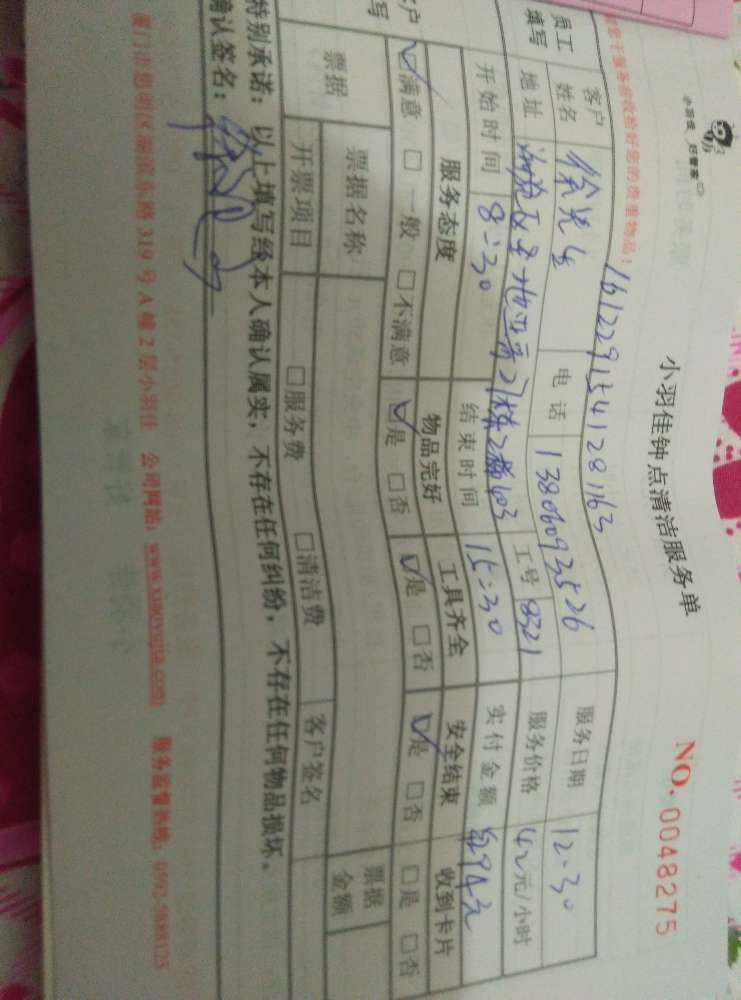 小羽佳 好管家
小羽佳钟点清洁服务单
NO. 0048275
服务前收检好您的贵重物品!
161229154128163
员工填写 客户姓名 徐先生 电话 13806093526 服务日期 12.30
地址 2栋2梯403 工号 8321 服务价格 42元/小时
开始时间 8:30 结束时间 15:30 实付金额 294元
客户 写 服务态度 物品完好 工具齐全 安全结束 收到卡片
☑满意 □一般 □不满意 ☑是 □否 ☑是 □否 ☑是 □否 □是 □否
票据 票据名称 票据金额
开票项目 □服务费 □清洁费 客户签名
特别承诺:以上填写经本人确认属实,不存在任何纠纷,不存在任何物品损坏。
确认签名:
厦门市思明区湖滨东路319号A幢2层小羽佳 公司网站:www.xiaoyujia.com 服务监督热线:0592-5881123